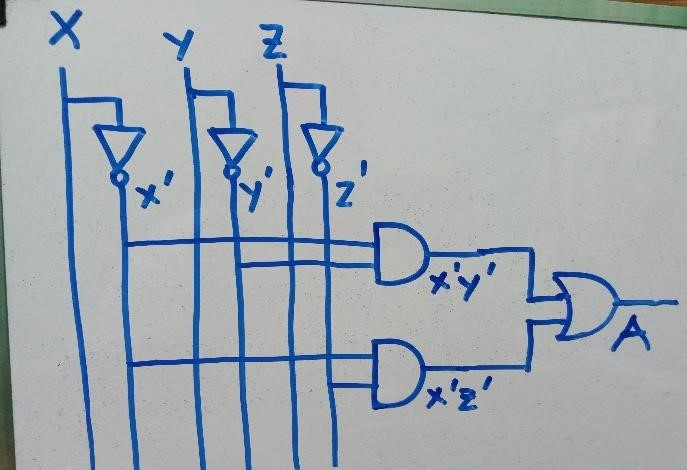 X Y Z
x' y' z'
x'y'
A
x'z'